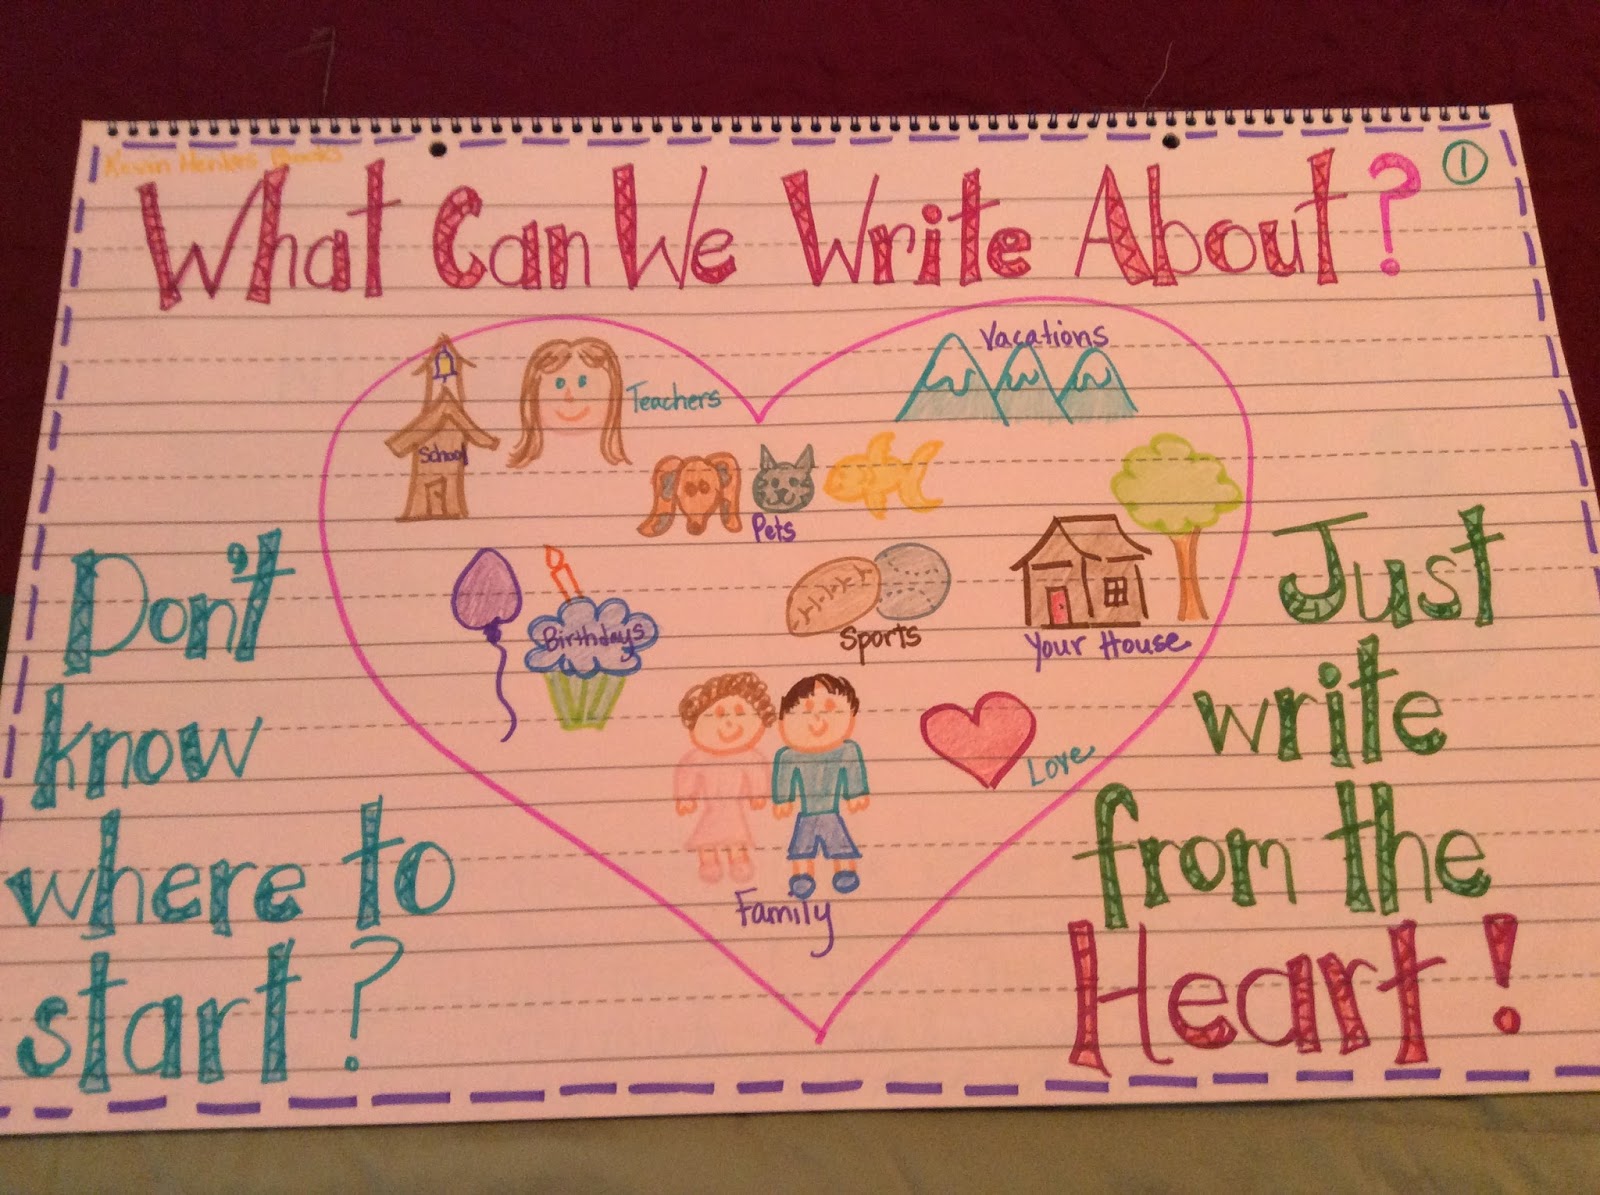 Kevin Henkes Books
What Can We Write About?
1
Vacations
Teachers
School
Pets
Birthdays
Sports
Your House
Love
Family
Don't
know
where to
start?
Just
write
from the
Heart!